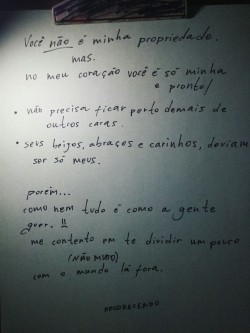 Você não é minha propriedade.
mas.
no meu coração você é só minha
e pronto!
• não precisa ficar perto demais de
outros caras.
• seus beijos, abraços e carinhos, deviam
ser só meus.
porém...
como nem tudo é como a gente
quer. !!
me contento em te dividir um pouco
(NÃO MUITO)
com o mundo lá fora.